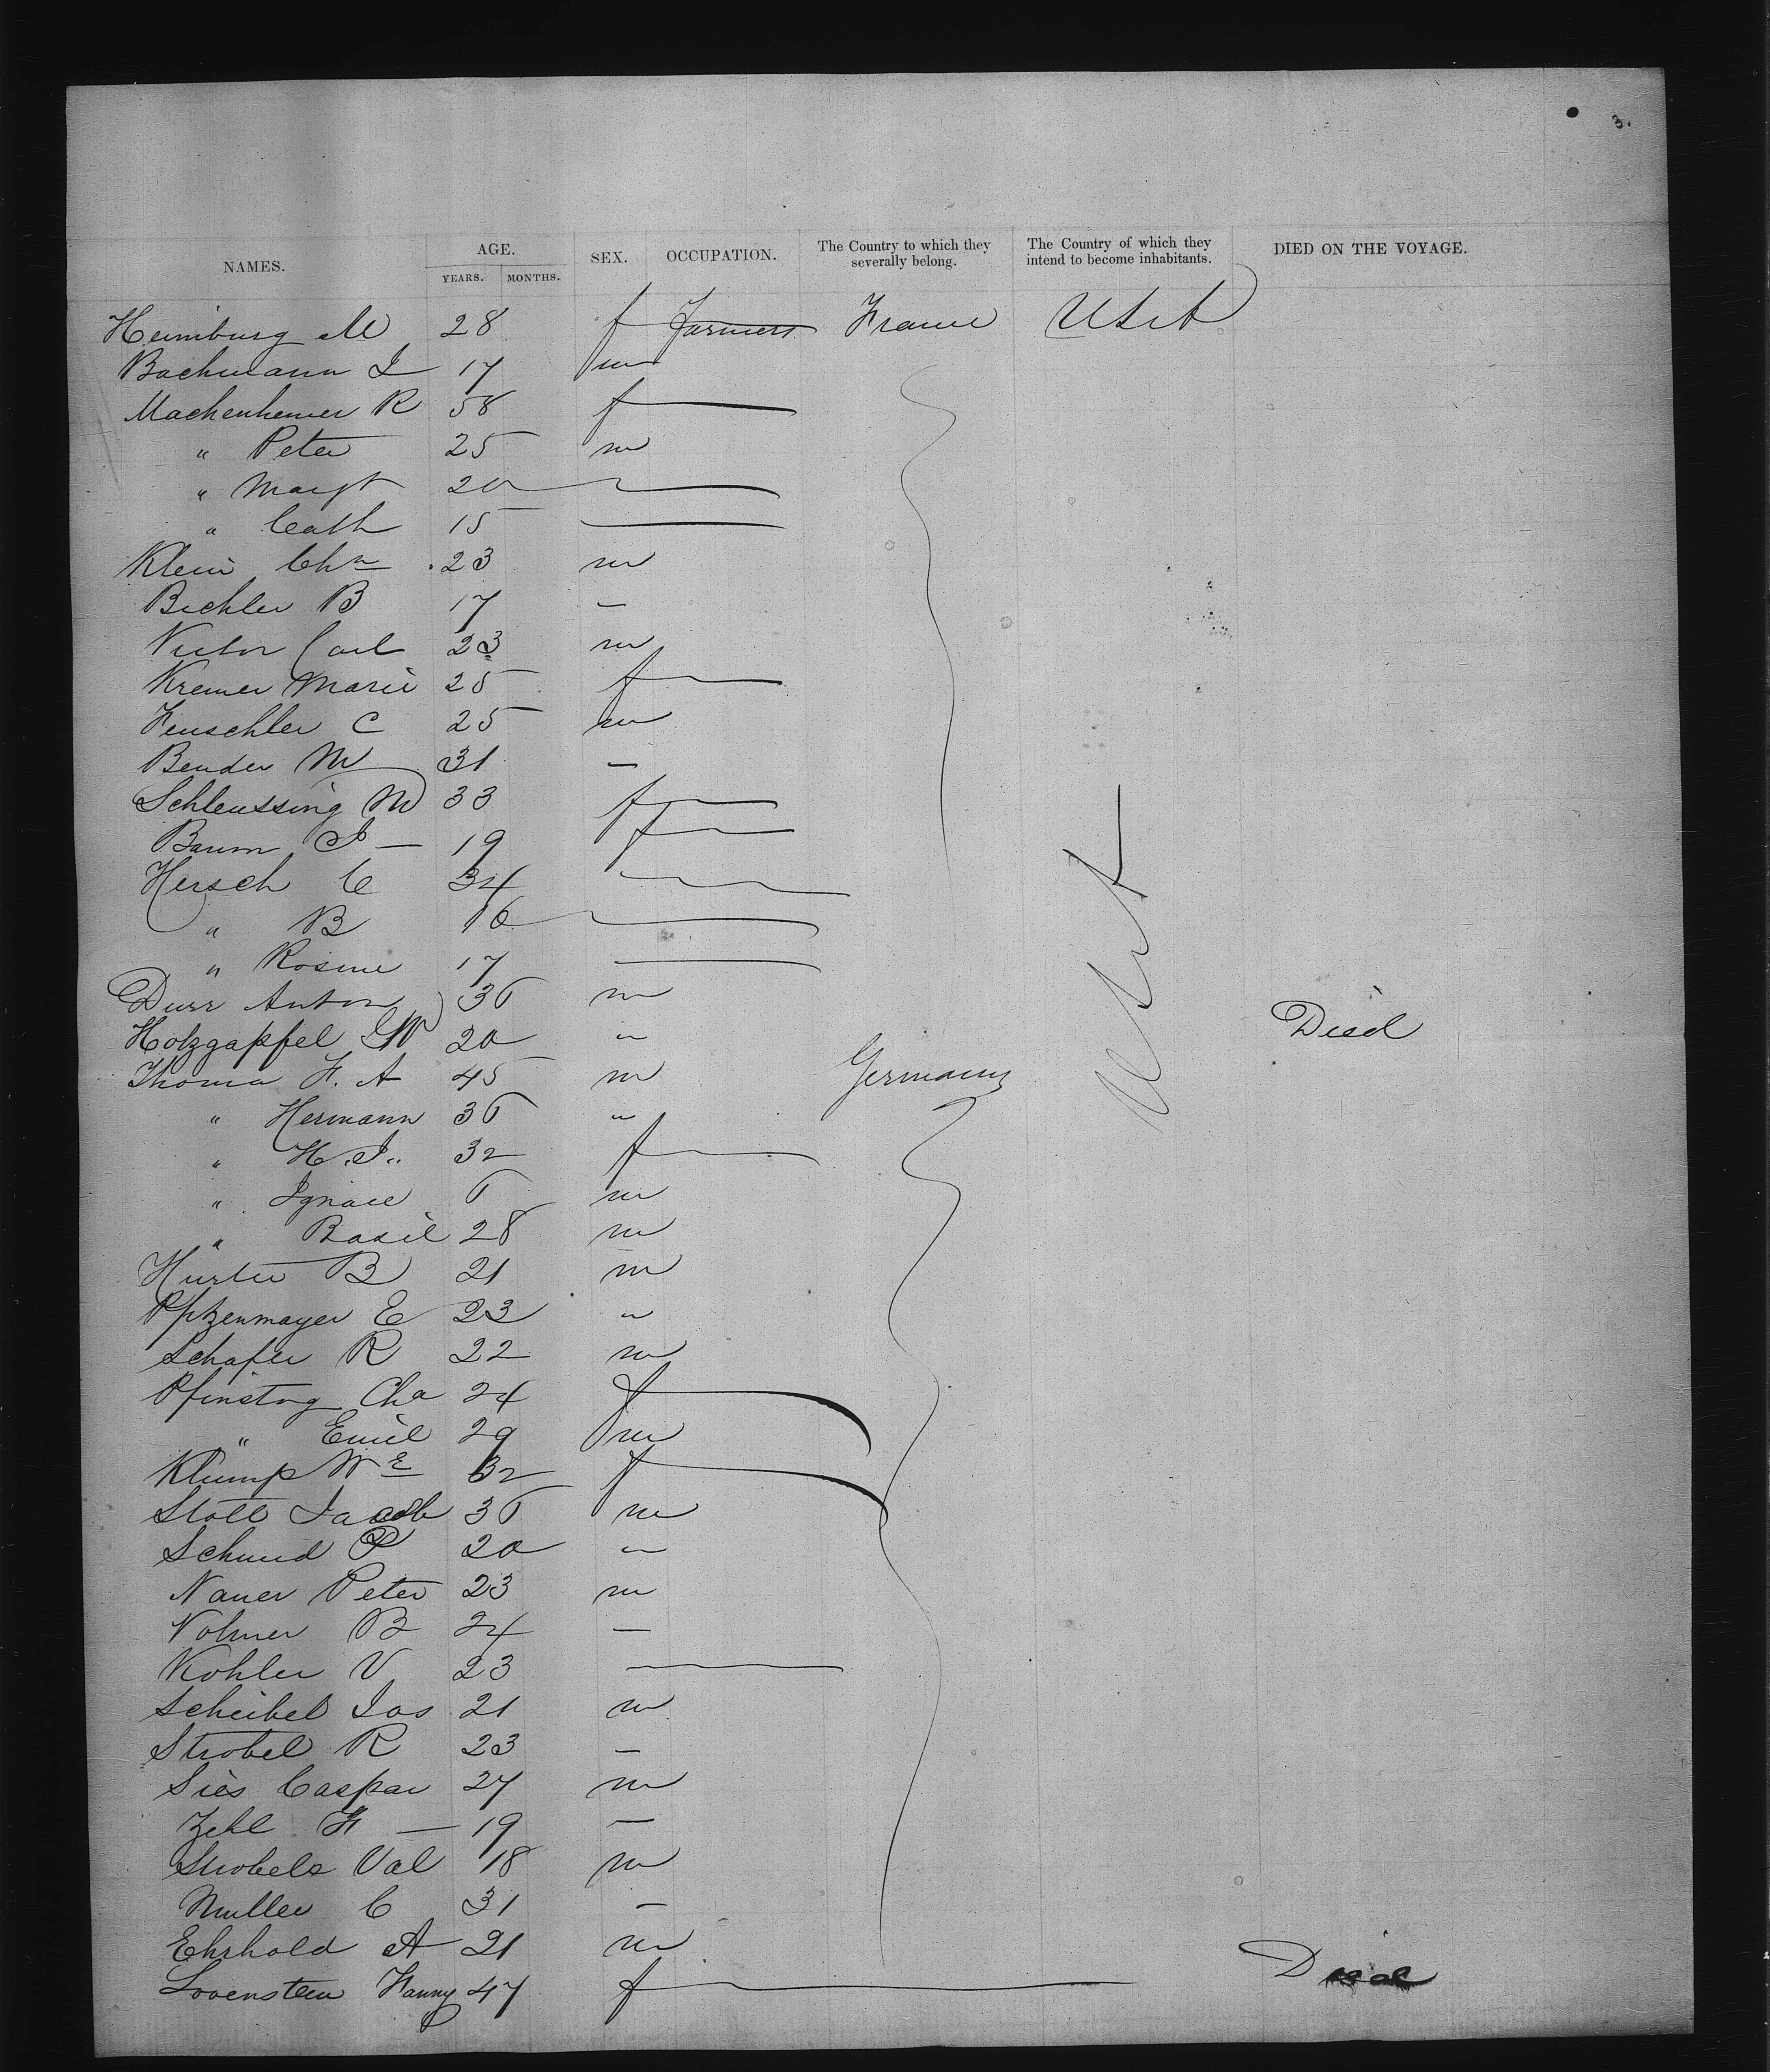 3.
NAMES. AGE. SEX. OCCUPATION. The Country to which they severally belong. The Country of which they intend to become inhabitants. DIED ON THE VOYAGE.
YEARS. MONTHS.
Heimburg M 28 f Farmers France USA
Bachmann J 17 m
Machenheimer R 58 f
" Peter 25 m
" Margt 20
" Cath 15
Klein Chn 23 m
Bichler B 17 —
Victor Carl 23 m
Kremer Marie 25 f
Feuschler C 25 m
Bender M 31 —
Schleussing M 33 f
Baum J — 19 f
Hersch C 34
" B 16
" Rosine 17
Durr Anton 36 m
Holzgapfel J W 20 " Died
Thoma F. A 45 m Germany
" Hermann 36 "
" H. J. 32 f
" Ignace 6 m
" Basil 28 m
Hurter B 21 m
Pfizenmayer E 23 "
Schafer R 22 m
Pfinstag Cha 24 f
" Emil 29 m
Klump Wе 32 f
Stoll Jacob 36 m
Schmid P 20 "
Nauer Peter 23 m
Volmer B 24 —
Kohler V 23
Scheibel Jos 21 m
Strobel R 23 —
Sies Caspar 27 m
Zehl F — 19 —
Strobele Val 18 m
Muller C 31 —
Ehrhold A 21 m
Lovenstein Fanny 47 f Died
USA